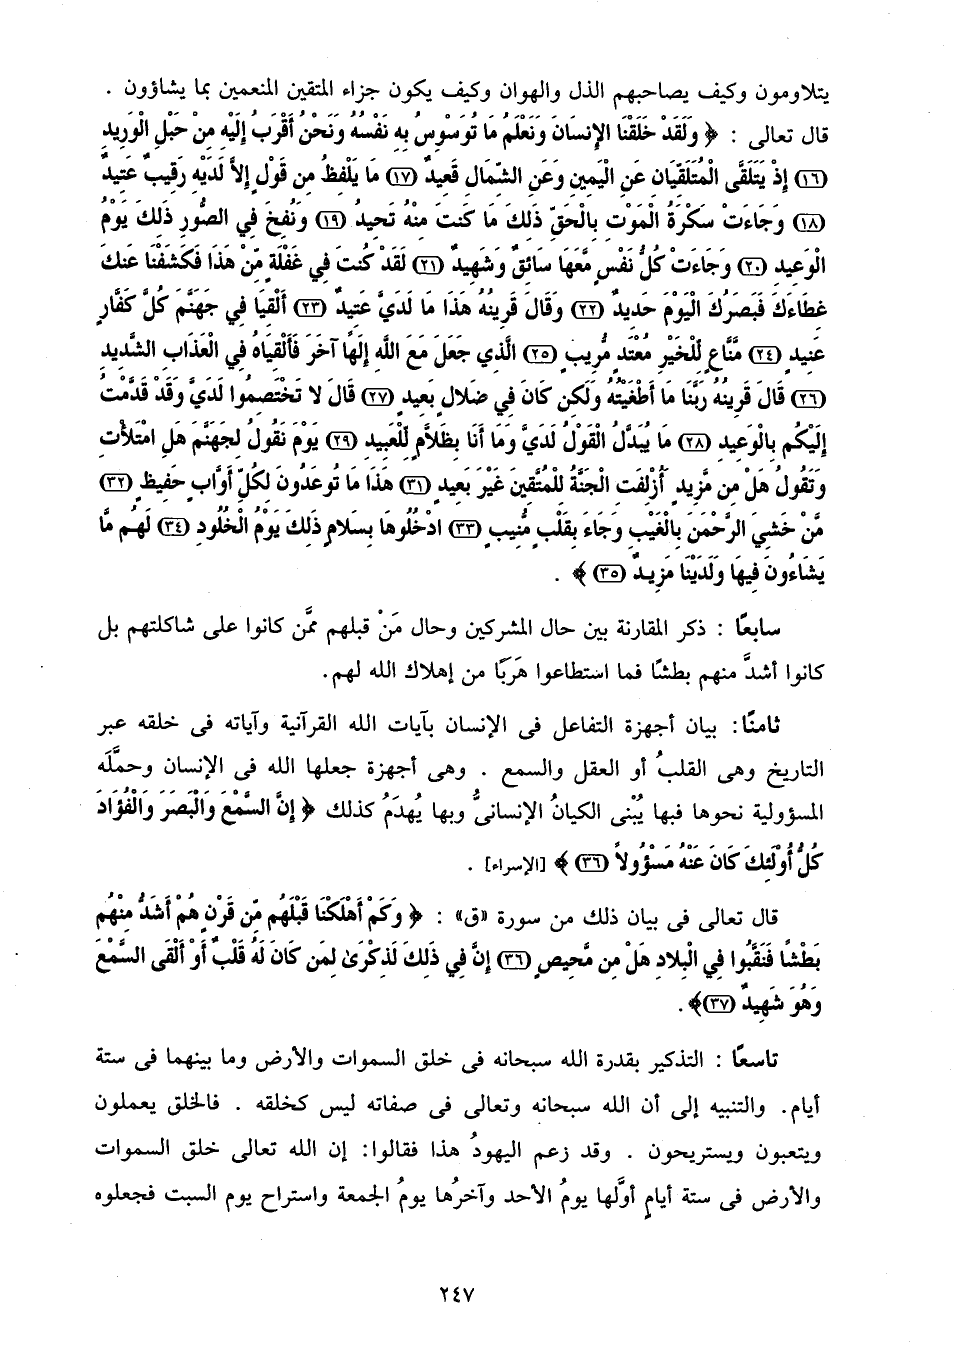 يتلاومون وكيف يصاحبهم الذل والهوان وكيف يكون جزاء المتقين المنعمين بما يشاؤون .
قال تعالى : ﴿ وَلَقَدْ خَلَقْنَا الإِنسَانَ وَنَعْلَمُ مَا تُوَسْوِسُ بِهِ نَفْسُهُ وَنَحْنُ أَقْرَبُ إِلَيْهِ مِنْ حَبْلِ الْوَرِيدِ
(١٦) إِذْ يَتَلَقَّى الْمُتَلَقِّيَانِ عَنِ الْيَمِينِ وَعَنِ الشِّمَالِ قَعِيدٌ (١٧) مَا يَلْفِظُ مِن قَوْلٍ إِلاَّ لَدَيْهِ رَقِيبٌ عَتِيدٌ
(١٨) وَجَاءَتْ سَكْرَةُ الْمَوْتِ بِالْحَقِّ ذَلِكَ مَا كُنتَ مِنْهُ تَحِيدُ (١٩) وَنُفِخَ فِي الصُّورِ ذَلِكَ يَوْمُ
الْوَعِيدِ (٢٠) وَجَاءَتْ كُلُّ نَفْسٍ مَّعَهَا سَائِقٌ وَشَهِيدٌ (٢١) لَقَدْ كُنتَ فِي غَفْلَةٍ مِّنْ هَذَا فَكَشَفْنَا عَنكَ
غِطَاءَكَ فَبَصَرُكَ الْيَوْمَ حَدِيدٌ (٢٢) وَقَالَ قَرِينُهُ هَذَا مَا لَدَيَّ عَتِيدٌ (٢٣) أَلْقِيَا فِي جَهَنَّمَ كُلَّ كَفَّارٍ
عَنِيدٍ (٢٤) مَّنَّاعٍ لِّلْخَيْرِ مُعْتَدٍ مُّرِيبٍ (٢٥) الَّذِي جَعَلَ مَعَ اللَّهِ إِلَهًا آخَرَ فَأَلْقِيَاهُ فِي الْعَذَابِ الشَّدِيدِ
(٢٦) قَالَ قَرِينُهُ رَبَّنَا مَا أَطْغَيْتُهُ وَلَكِن كَانَ فِي ضَلالٍ بَعِيدٍ (٢٧) قَالَ لا تَخْتَصِمُوا لَدَيَّ وَقَدْ قَدَّمْتُ
إِلَيْكُم بِالْوَعِيدِ (٢٨) مَا يُبَدَّلُ الْقَوْلُ لَدَيَّ وَمَا أَنَا بِظَلاَّمٍ لِّلْعَبِيدِ (٢٩) يَوْمَ نَقُولُ لِجَهَنَّمَ هَلِ امْتَلأْتِ
وَتَقُولُ هَلْ مِن مَّزِيدٍ أُزْلِفَتِ الْجَنَّةُ لِلْمُتَّقِينَ غَيْرَ بَعِيدٍ (٣١) هَذَا مَا تُوعَدُونَ لِكُلِّ أَوَّابٍ حَفِيظٍ (٣٢)
مَّنْ خَشِيَ الرَّحْمَنَ بِالْغَيْبِ وَجَاءَ بِقَلْبٍ مُّنِيبٍ (٣٣) ادْخُلُوهَا بِسَلامٍ ذَلِكَ يَوْمُ الْخُلُودِ (٣٤) لَهُم مَّا
يَشَاءُونَ فِيهَا وَلَدَيْنَا مَزِيدٌ (٣٥) ﴾ .
سابعًا : ذكر المقارنة بين حال المشركين وحال مَنْ قبلهم ممَّن كانوا على شاكلتهم بل
كانوا أشدَّ منهم بطشًا فما استطاعوا هَرَبًا من إهلاك الله لهم.
ثامنًا: بيان أجهزة التفاعل فى الإنسان بآيات الله القرآنية وآياته فى خلقه عبر
التاريخ وهى القلبُ أو العقل والسمع . وهى أجهزة جعلها الله فى الإنسان وحمَّلَه
المسؤولية نحوها فبها يُبْنى الكيانُ الإنسانىُّ وبها يُهدَمُ كذلك ﴿ إِنَّ السَّمْعَ وَالْبَصَرَ وَالْفُؤَادَ
كُلُّ أُوْلَئِكَ كَانَ عَنْهُ مَسْؤُولاً (٣٦) ﴾ [الإسراء] .
قال تعالى فى بيان ذلك من سورة «ق» : ﴿ وَكَمْ أَهْلَكْنَا قَبْلَهُم مِّن قَرْنٍ هُمْ أَشَدُّ مِنْهُم
بَطْشًا فَنَقَّبُوا فِي الْبِلادِ هَلْ مِن مَّحِيصٍ (٣٦) إِنَّ فِي ذَلِكَ لَذِكْرَىٰ لِمَن كَانَ لَهُ قَلْبٌ أَوْ أَلْقَى السَّمْعَ
وَهُوَ شَهِيدٌ (٣٧)﴾.
تاسعًا : التذكير بقدرة الله سبحانه فى خلق السموات والأرض وما بينهما فى ستة
أيام. والتنبيه إلى أن الله سبحانه وتعالى فى صفاته ليس كخلقه . فالخلق يعملون
ويتعبون ويستريحون . وقد زعم اليهودُ هذا فقالوا: إن الله تعالى خلق السموات
والأرض فى ستة أيامٍ أوَّلها يومُ الأحد وآخرُها يومُ الجمعة واستراح يوم السبت فجعلوه
٢٤٧